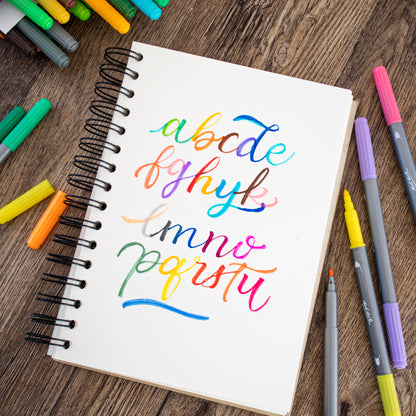 abcde
fghyk
lmno
pqrstu